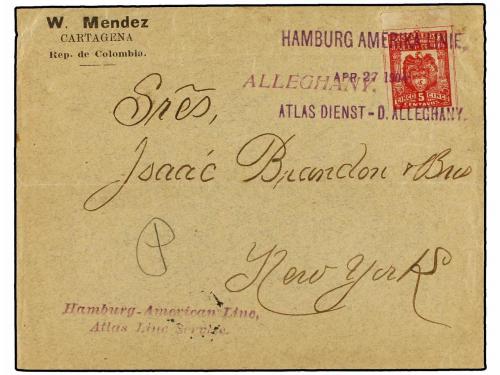 W. Mendez
CARTAGENA
Rep. de Colombia.
HAMBURG AMERIKA LINIE,
APR 27
ALLEGHANY.
ATLAS DIENST - D. ALLEGHANY.
CINCO 5 CINCO
CENTAVOS
Srẽs,
Isaác Brandon & Bros
New York
Hamburg-American Line,
Atlas Line Service.